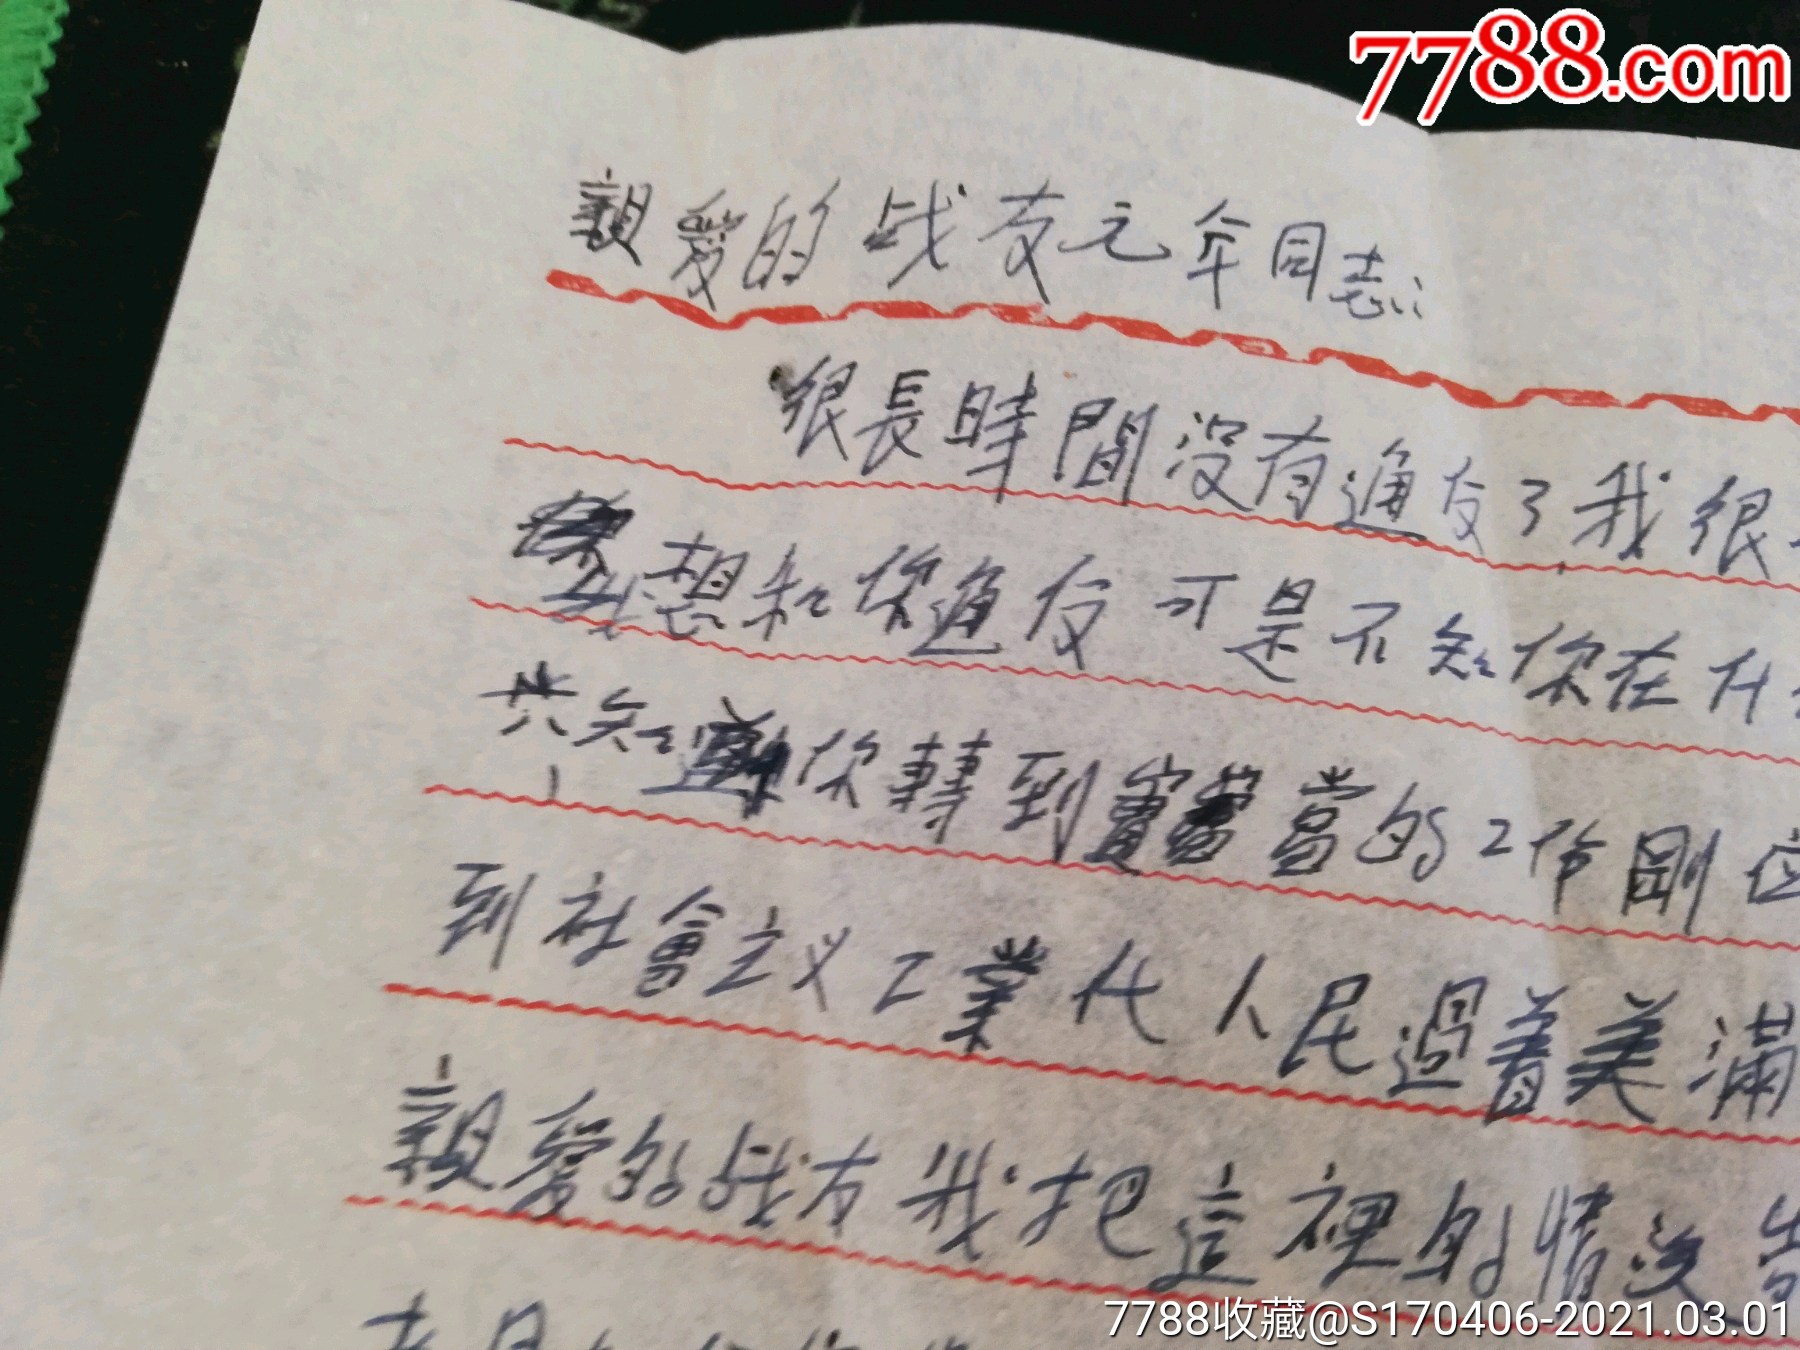 7788.com
親愛的战友元年同志:
很長時間没有通友了我很
我想和你通友可是不知你在什
共知道你轉到當的工作剛
到社會主义工業代人民過着美滿
親愛的战友我把這裡的情没
7788收藏@S170406-2021.03.01